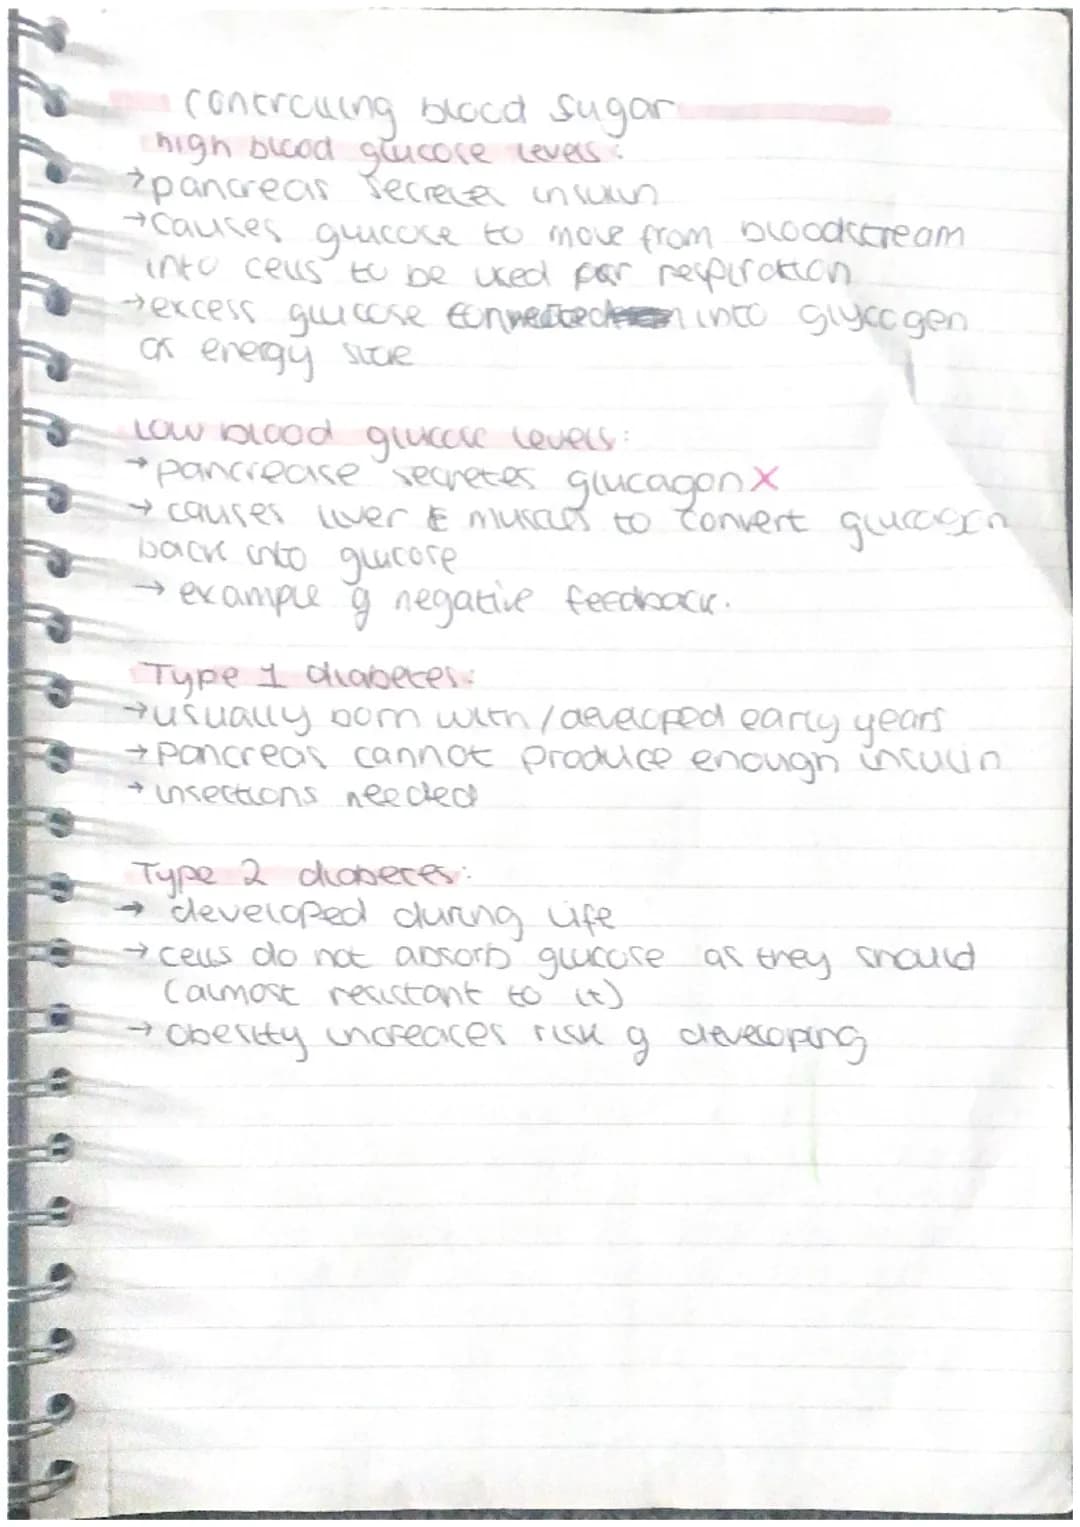 controlling blood sugar
high blood glucose levels:
→pancreas secretes insulin
→causes glucose to move from bloodstream
into cells to be used for respiration
→excess glucose converted into glycogen
as energy store
Low blood glucose levels:
→pancrease secretes glucagon X
→ causes liver & muscles to convert glucagon
back into glucose
→ example of negative feedback.
Type 1 diabetes:
→usually born with / developed early years
→pancreas cannot produce enough insulin
→ insections needed
Type 2 diabetes:
→ developed during life
→ cells do not absorb glucose as they should
(almost resistant to it)
→ obesity increaces risk of developing